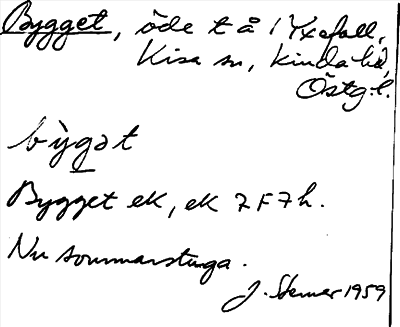 Bygget, öde t å 1 Yxefall,
Kisa sn, Kinda hd,
Östg. l.
bỳgət
Bygget ek, ek 7 F 7 h.
Nu sommarstuga.
J. Stemer 1959